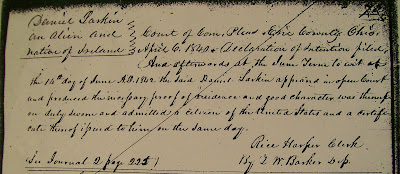 Daniel Larkin
an Alien and
native of Ireland
Court of Com. Pleas Erie County Ohio
April 6. 1840 Declaration of Intention filed,
And afterwards at the June Term to wit at
the 14th day of June A.D. 1842 the said Daniel Larkin appeared in open Court
and produced the necessary proof of residence and good character was thereup
on duly sworn and admitted a citizen of the United States and a certifi
cate thereof issued to him on the same day.
Rice Harper Clerk.
By Z. W. Barker Dep.
See Journal 2 page 225